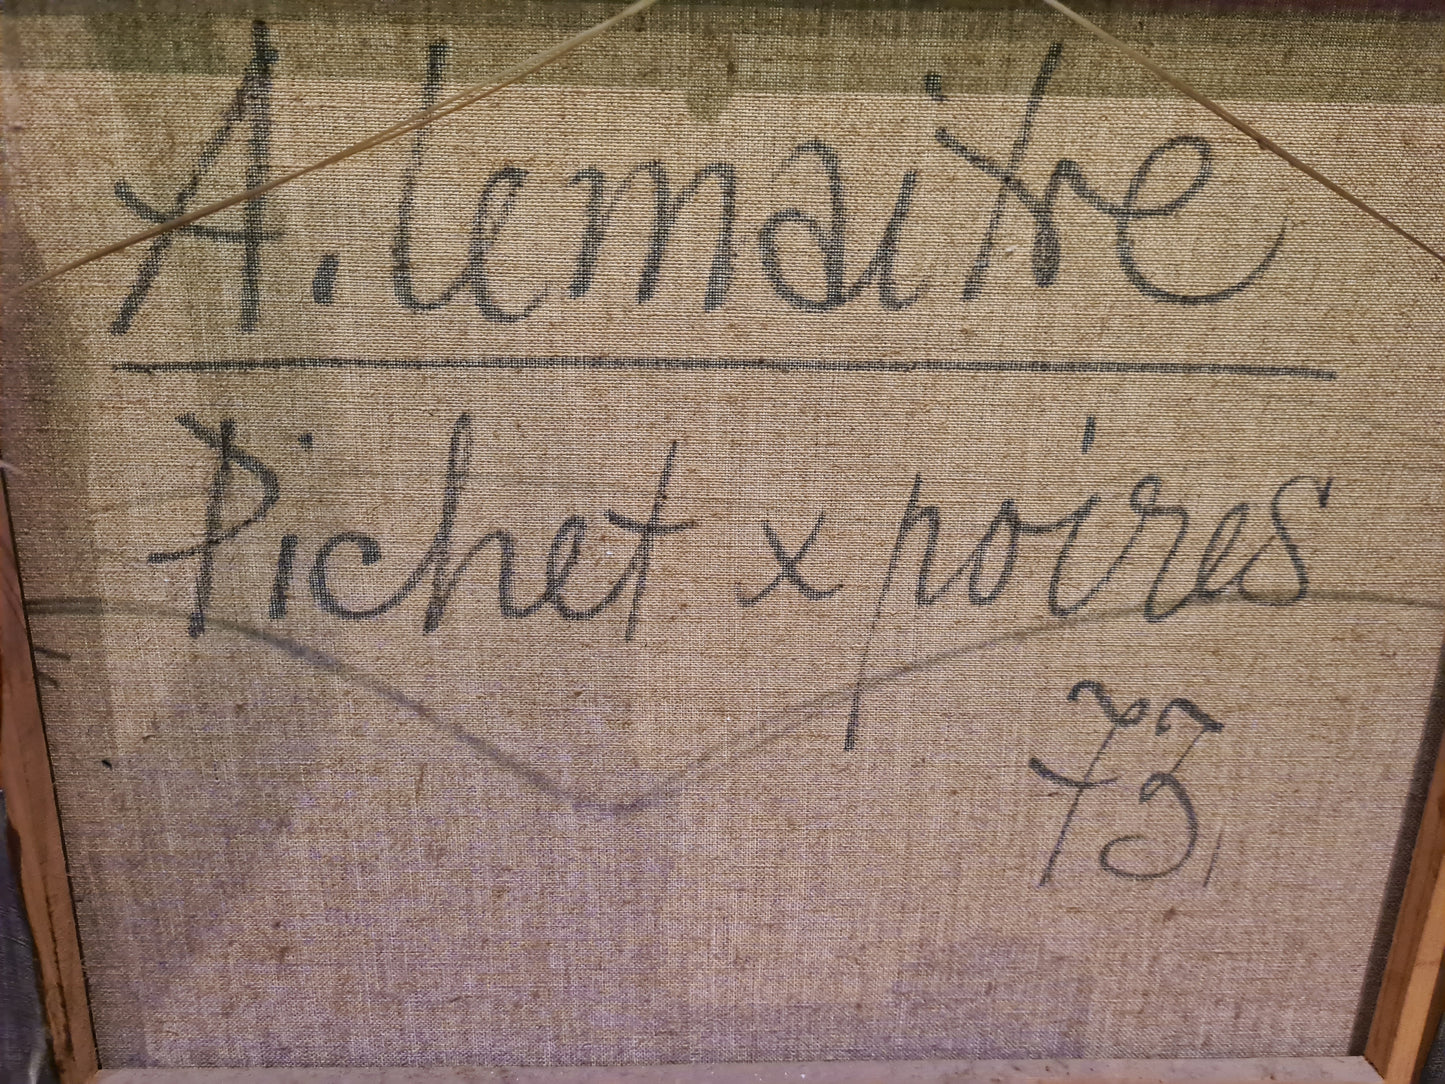 A. lemaitre
Pichet x poires
73